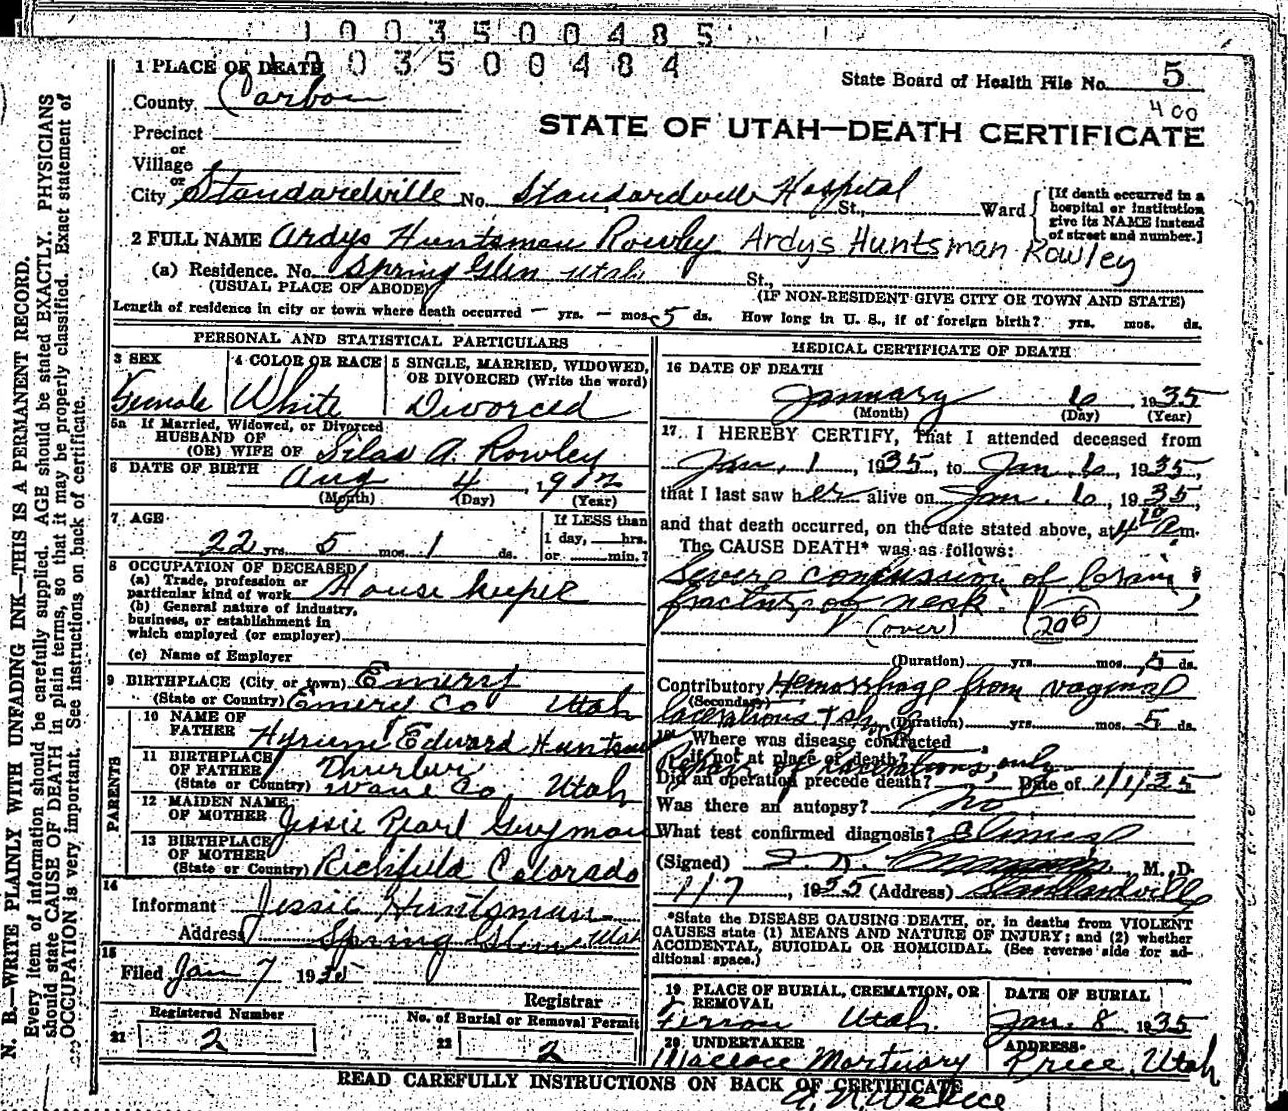 1 0 0 3 5 0 0 4 8 5
1 0 0 3 5 0 0 4 8 4
1 PLACE OF DEATH
State Board of Health File No. 5
County Carbon
400
STATE OF UTAH—DEATH CERTIFICATE
Precinct
or
Village
or
City Standardville No. Standardville Hospital St., Ward
[If death occurred in a hospital or institution give its NAME instead of street and number.]
2 FULL NAME Ardys Huntsman Rowley Ardys Huntsman Rowley
(a) Residence. No. Spring Glen Utah St.,
(USUAL PLACE OF ABODE) (IF NON-RESIDENT GIVE CITY OR TOWN AND STATE)
Length of residence in city or town where death occurred — yrs. — mos. 5 ds. How long in U. S., if of foreign birth? yrs. mos. ds.
PERSONAL AND STATISTICAL PARTICULARS
3 SEX
Female
4 COLOR OR RACE
White
5 SINGLE, MARRIED, WIDOWED,
OR DIVORCED (Write the word)
Divorced
5a If Married, Widowed, or Divorced
HUSBAND OF
(OR) WIFE OF Silas A. Rowley
6 DATE OF BIRTH
Aug 4, 1912
(Month) (Day) (Year)
7 AGE
22 yrs. 5 mos. 1 ds.
If LESS than
1 day, hrs.
or min.?
8 OCCUPATION OF DECEASED
(a) Trade, profession or
particular kind of work House keeper
(b) General nature of industry,
business, or establishment in
which employed (or employer)
(c) Name of Employer
9 BIRTHPLACE (City or town) Emery
(State or Country) Emery Co Utah
PARENTS
10 NAME OF
FATHER Hyrum Edward Huntsman
11 BIRTHPLACE
OF FATHER Thurber
(State or Country) Wane Co. Utah
12 MAIDEN NAME
OF MOTHER Jessie Pearl Guymon
13 BIRTHPLACE
OF MOTHER
(State or Country) Richfield Colorado
14
Informant Jessie Huntsman
Address Spring Glen Utah
15
Filed Jan 7 1935
Registrar
Registered Number
21 2
No. of Burial or Removal Permit
22 2
MEDICAL CERTIFICATE OF DEATH
16 DATE OF DEATH
January 6 1935
(Month) (Day) (Year)
17. I HEREBY CERTIFY, That I attended deceased from
Jan. 1, 1935, to Jan 6, 1935,
that I last saw her alive on Jan. 6, 1935,
and that death occurred, on the date stated above, at 4 10 a m.
The CAUSE DEATH* was as follows:
Severe concussion of brain
fracture of neck.
(over) 206
(Duration) yrs. mos. 5 ds.
Contributory Hemorrhage from vaginal
(Secondary)
lacerations + (Duration) yrs. mos. 5 ds.
18. Where was disease contracted
if not at place of death?
Repair of lacerations only
Did an operation precede death? Date of 1/1/35
Was there an autopsy? No
What test confirmed diagnosis? Clinical
(Signed) M. D.
1/7, 1935 (Address) Standardville
*State the DISEASE CAUSING DEATH, or, in deaths from VIOLENT
CAUSES state (1) MEANS AND NATURE OF INJURY; and (2) whether
ACCIDENTAL, SUICIDAL OR HOMICIDAL. (See reverse side for ad-
ditional space.)
19 PLACE OF BURIAL, CREMATION, OR
REMOVAL
Ferron Utah.
DATE OF BURIAL
Jan. 8 1935
20 UNDERTAKER
Wallace Mortuary
ADDRESS
Price, Utah
READ CAREFULLY INSTRUCTIONS ON BACK OF CERTIFICATE
N. B.—WRITE PLAINLY WITH UNFADING INK—THIS IS A PERMANENT RECORD.
Every item of information should be carefully supplied. AGE should be stated EXACTLY. PHYSICIANS
should state CAUSE OF DEATH in plain terms, so that it may be properly classified. Exact statement of
OCCUPATION is very important. See instructions on back of certificate.